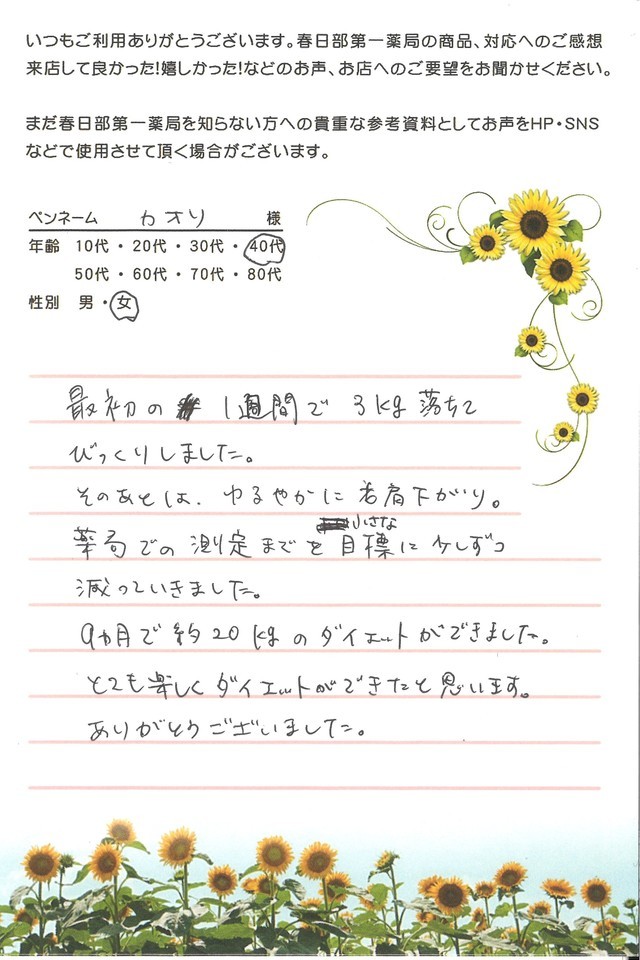 いつもご利用ありがとうございます。春日部第一薬局の商品、対応へのご感想
来店して良かった!嬉しかった!などのお声、お店へのご要望をお聞かせください。
まだ春日部第一薬局を知らない方への貴重な参考資料としてお声をHP・SNS
などで使用させて頂く場合がございます。
ペンネーム カオリ 様
年齢 10代・20代・30代・40代
50代・60代・70代・80代
性別 男・女
最初の 1週間で 3kg落ちて
びっくりしました。
そのあとは、ゆるやかに右肩下がり。
小さな
薬局での測定までを目標に少しずつ
減っていきました。
9ヵ月で約20kgのダイエットができました。
とても楽しくダイエットができたと思います。
ありがとうございました。